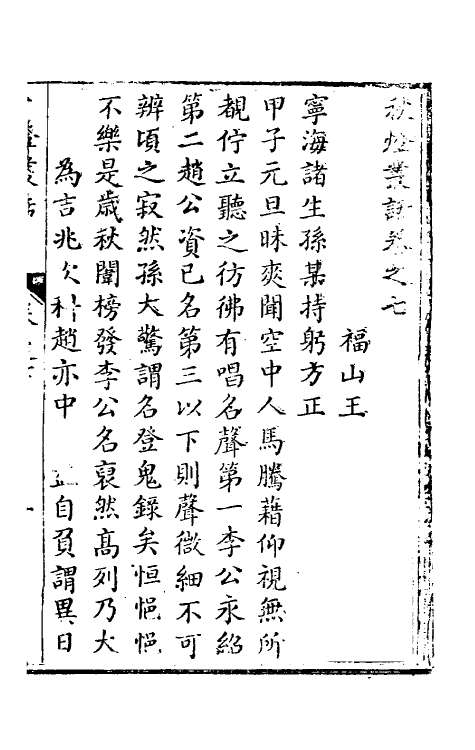 秋燈叢話卷之七
福山王
寧海諸生孫某持躬方正
甲子元旦昧爽聞空中人馬騰藉仰視無所
覩佇立聽之彷彿有唱名聲第一李公永紹
第二趙公資已名第三以下則聲微細不可
辨頃之寂然孫大驚謂名登鬼錄矣恒悒悒
不樂是歳秋闈榜發李公名裒然髙列乃大
為吉兆次科趙亦中 益自負謂異日